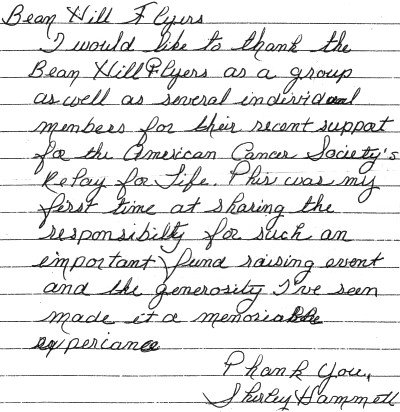 Bean Hill Flyers
I would like to thank the
Bean Hill Flyers as a group
as well as several individual
members for their recent support
for the American Cancer Society's
Relay for Life. This was my
first time at sharing the
responsibilty for such an
important fund raising event
and the generosity I've seen
made it a memorable
experiance
Thank You,
Shirley Hammett